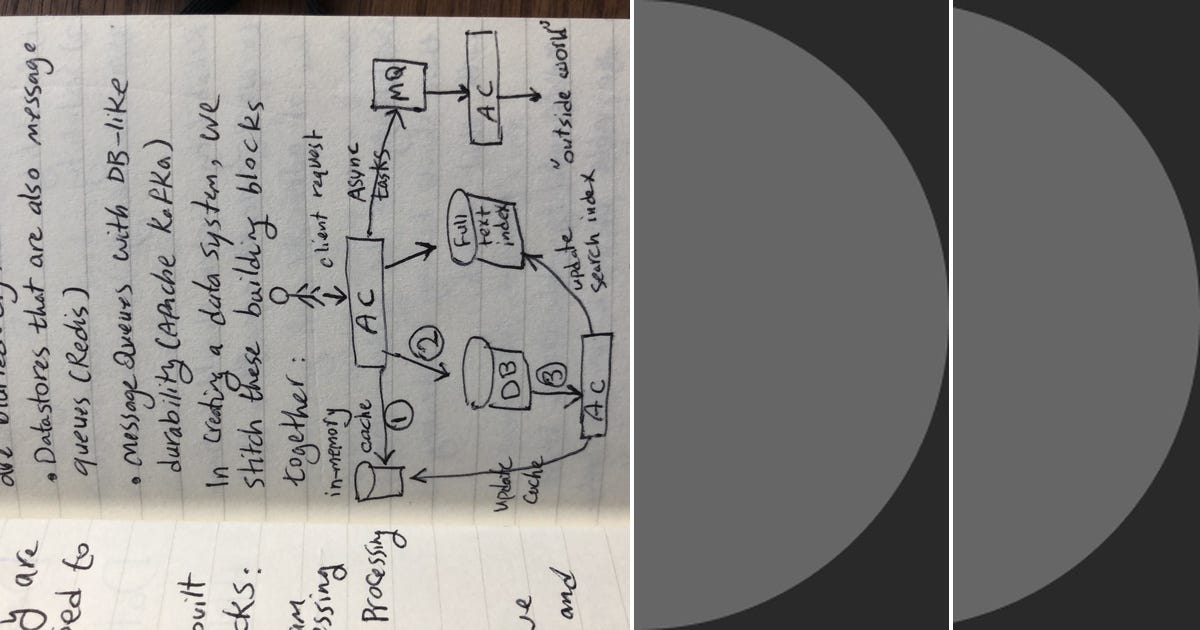 • Datastores that are also message
queues (Redis)
• message Queues with DB-like
durability (Apache Kafka)
In creating a data system, we
stitch these building blocks
together:
client request
in-memory
cache
AC
Async
tasks
MQ
AC
"outside world"
1
2
Full
text
index
DB
3
AC
update
search index
update
cache
are
to
built
Processing
and